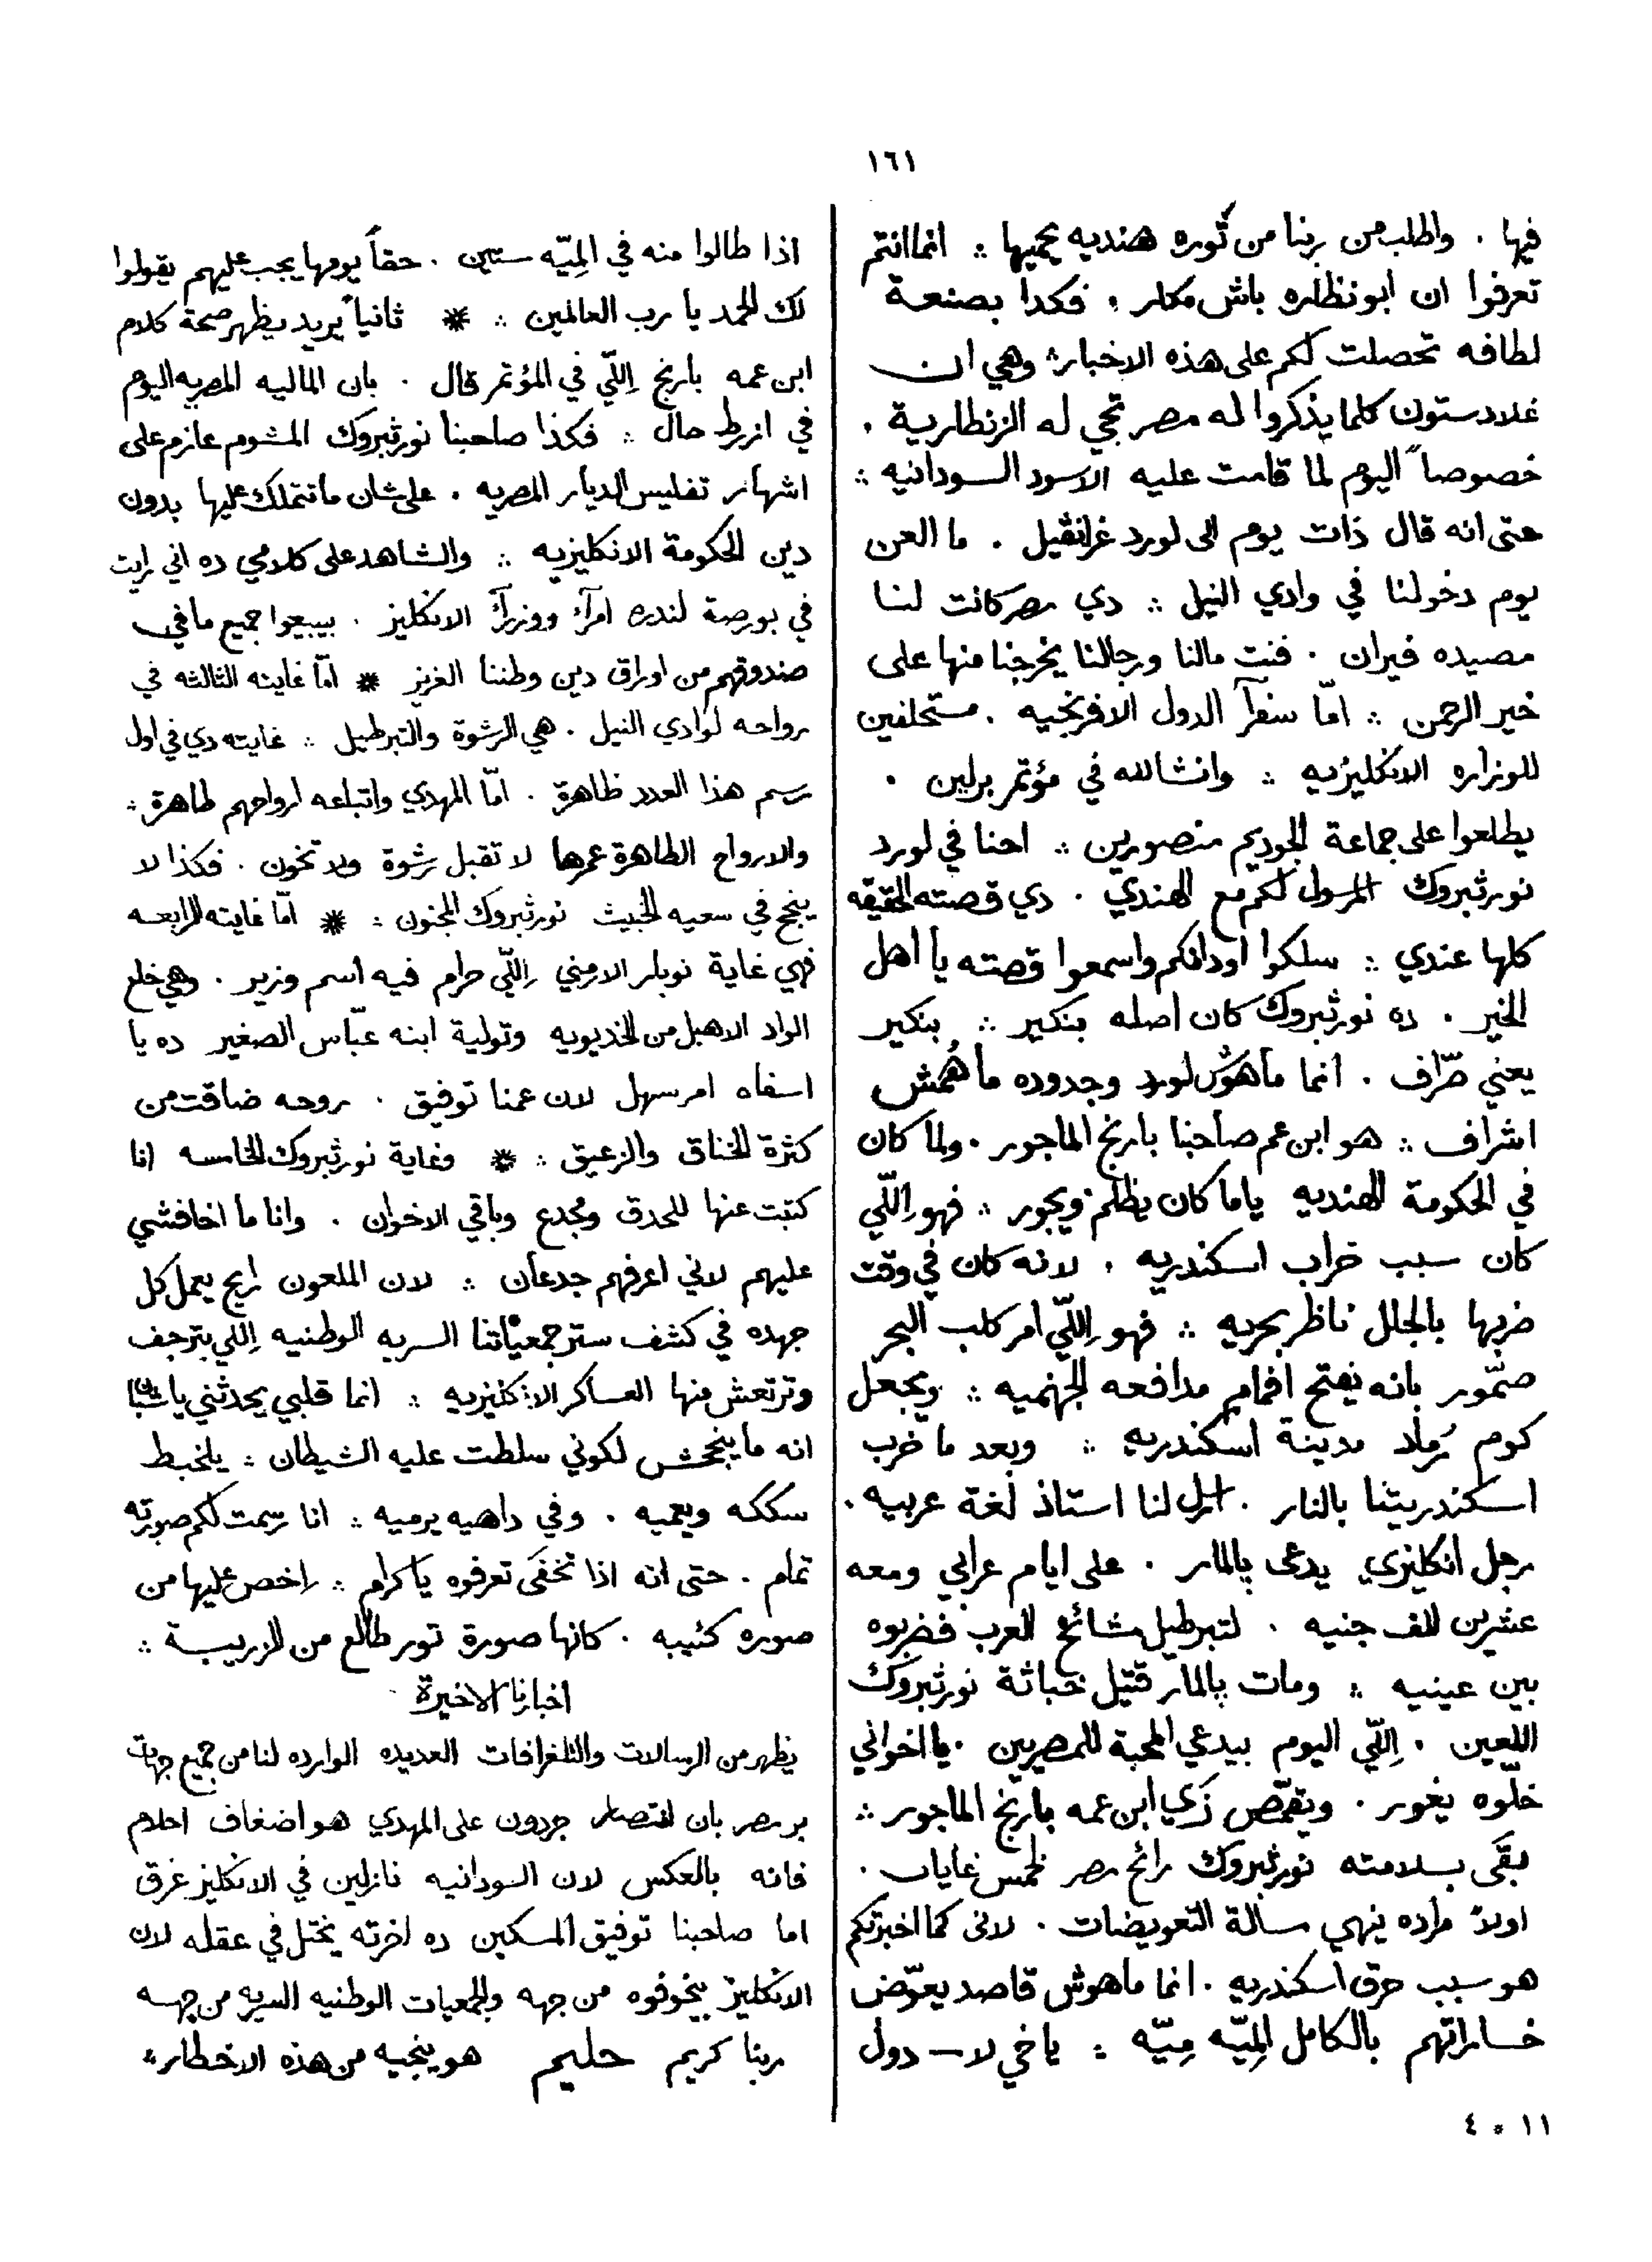 ١٦١
فيها . واطلب من ربنا من ثوره هنديه يحميها ؞ انما انتم
تعرفوا ان ابو نظاره باش مكار . فكدا بصنعة
لطافه تحصلت لكم على هذه الاخبار ؞ وهي ان
غلادستون كلما يذكروا له مصر تجي له الزنطارية .
خصوصاً اليوم لما قامت عليه الاسود السودانيه ؞
حتى انه قال ذات يوم الى لورد غرانڤيل . ما العن
يوم دخولنا في وادي النيل ؞ دي مصر كانت لنا
مصيده فيران . فنت مالنا ورجالنا يخرجنا منها على
خير الرحمن ؞ امّا سفرآ الدول الافرنجيه . مستحلفين
للوزاره الانكليزيه ؞ وانشالله في مؤتمر برلين .
يطلعوا على جماعة الجوديم منصورين ؞ احنا في لورد
نورثبروك المرسول لكم مع الهندي . دي قصته الحقيقه
كلها عندي ؞ سلكوا اودانكم واسمعوا قصته يا اهل
الخير . ده نورثبروك كان اصله بنكير ؞ بنكير
يعني صرّاف . انما ماهوش لورد وجدوده ماهُمش
اشراف ؞ هو ابن عم صاحبنا بارنج الماجور . ولما كان
في الحكومة الهنديه ياما كان يظلم ويجور ؞ فهو اِللّي
كان سبب خراب اسكندريه . لانه كان في وقت
ضربها بالجلل ناظر بحريه ؞ فهو اِللّي امر كلب البحر
صمّور بانه يفتح افمام مدافعه الجهنميه ؞ ويجعل
كوم رماد مدينة اسكندريه ؞ وبعد ما خرب
اسكندريتنا بالنار . ارسل لنا استاذ لغة عربيه .
رجل انكليزي يدعى پالمار . على ايام عرابي ومعه
عشرين الف جنيه . لتبرطيل مشائخ العرب فضربوه
بين عينيه ؞ ومات پالمار قتيل خباثة نورثبروك
اللعين . اِللّي اليوم بيدعي المحبة للمصريين . يا اخواني
خلّوه يغور . ويتقمّص زي ابن عمه بارنج الماجور ؞
بقى بسلامته نورثبروك رائح مصر لخمس غايات .
اولاً مراده ينهي مسالة التعويضات . لاني كما اخبرتكم
هو سبب حرق اسكندريه . انما ماهوش قاصد يعوّض
خساراتهم بالكامل المِيّه مِيّه ؞ يا خي لا — دول
١١ * ٤
اذا طالوا منه في المِيّه ستين . حقاً يومها يجب عليهم يقولوا
لك الحمد يا رب العالمين ؞ * ثانياً يريد يظهر صحة كلام
ابن عمه بارنج اِللّي في المؤتمر قال . بان الماليه المصريه اليوم
في ازرط حال ؞ فكذا صاحبنا نورثبروك المشوم عازم على
اشهار تفليس الديار المصريه . على شان ما تتملك عليها بدون
دين الحكومة الانكليزيه ؞ والشاهد على كلامي ده اني رايت
في بورصة لندره امرآء ووزرآء الانكليز . بيبيعوا جميع ما في
صندوقهم من اوراق دين وطننا العزيز * امّا غايته الثالثه في
رواحه لوادي النيل . هي الرشوة والتبرطيل ؞ غايته دي في اول
رسم هذا العدد ظاهرة . امّا المهدي واتباعه ارواحهم طاهرة ؞
والارواح الطاهرة عمرها لا تقبل رشوة ولا تخون . فكذا لا
ينجح في سعيه الخبيث نورثبروك المجنون ؞ * امّا غايته الرابعه
فهي غاية نوبار الارمني اِللّي حرام فيه اسم وزير . وهي خلع
الواد الاهبل من الخديويه وتولية ابنه عبّاس الصغير ده يا
اسفاه امر سهل لان عمنا توفيق . روحه ضاقت من
كثرة الخناق والزعيق ؞ * وغاية نورثبروك الخامسه انا
كتبت عنها للحدق ومجدع وباقي الاخوان . وانا ما اخافشي
عليهم لاني اعرفهم جدعان ؞ لان الملعون رايح يعمل كل
جهده في كشف ستر جمعياتنا السريه الوطنيه اِللي بترجف
وترتعش منها العساكر الانكليزيه ؞ انما قلبي يحدثني يا شبان
انه ما ينجحش لكوني سلطت عليه الشيطان ؞ يلخبط
سككه ويعميه . وفي داهيه يرميه ؞ انا رسمت لكم صورته
تمام . حتى انه اذا تخفى تعرفوه يا كرام ؞ اخص عليها من
صوره كئيبه . كانها صورة تور طالع من الزريبة ؞
اخبارنا الاخيرة
يظهر من الرسالات والتلغرافات العديده الوارده لنا من جميع جهات
بر مصر بان انتصار جردون على المهدي هو اضغاف احلام
فانه بالعكس لان السودانيه نازلين في الانكليز غرق
اما صاحبنا توفيق المسكين ده اخرته يختل في عقله لان
الانكليز بيخوفوه من جهه والجمعيات الوطنيه السريه من جهه
ربنا كريم حليم هو ينجيه من هذه الاخطار ؞